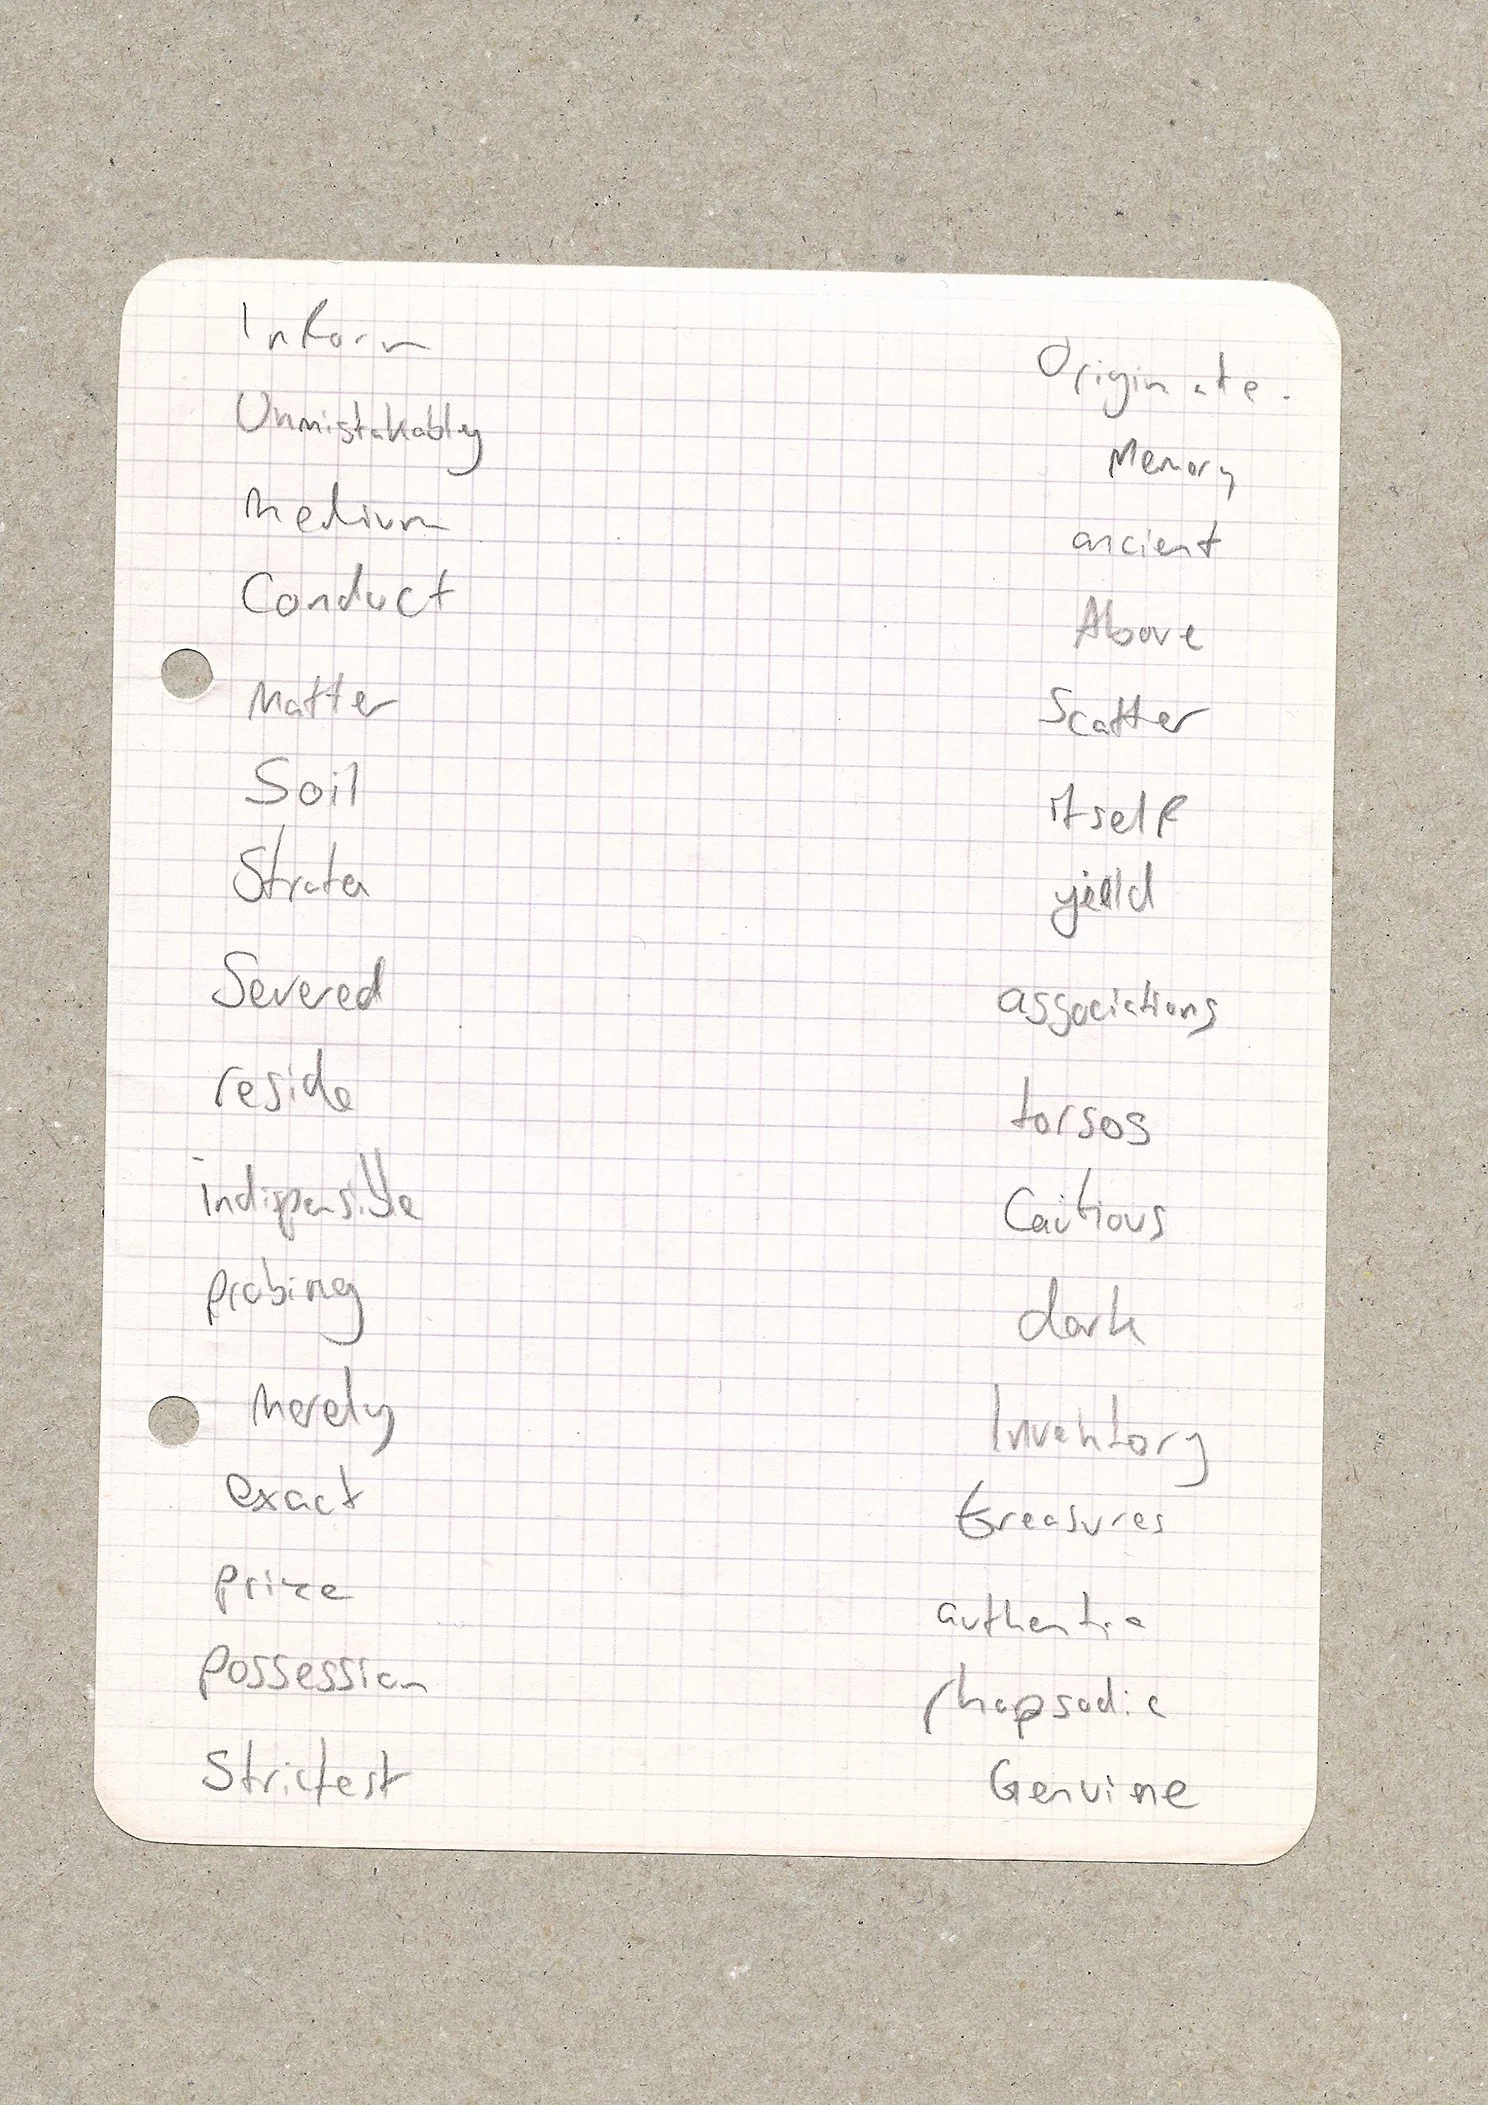 Inform
Unmistakably
Medium
Conduct
Matter
Soil
Strata
Severed
reside
indispensible
probing
Merely
exact
prize
possession
Strictest
Originate.
Memory
ancient
Above
Scatter
itself
yield
associations
torsos
Cautious
dark
Inventory
treasures
authentic
rhapsodic
Genuine